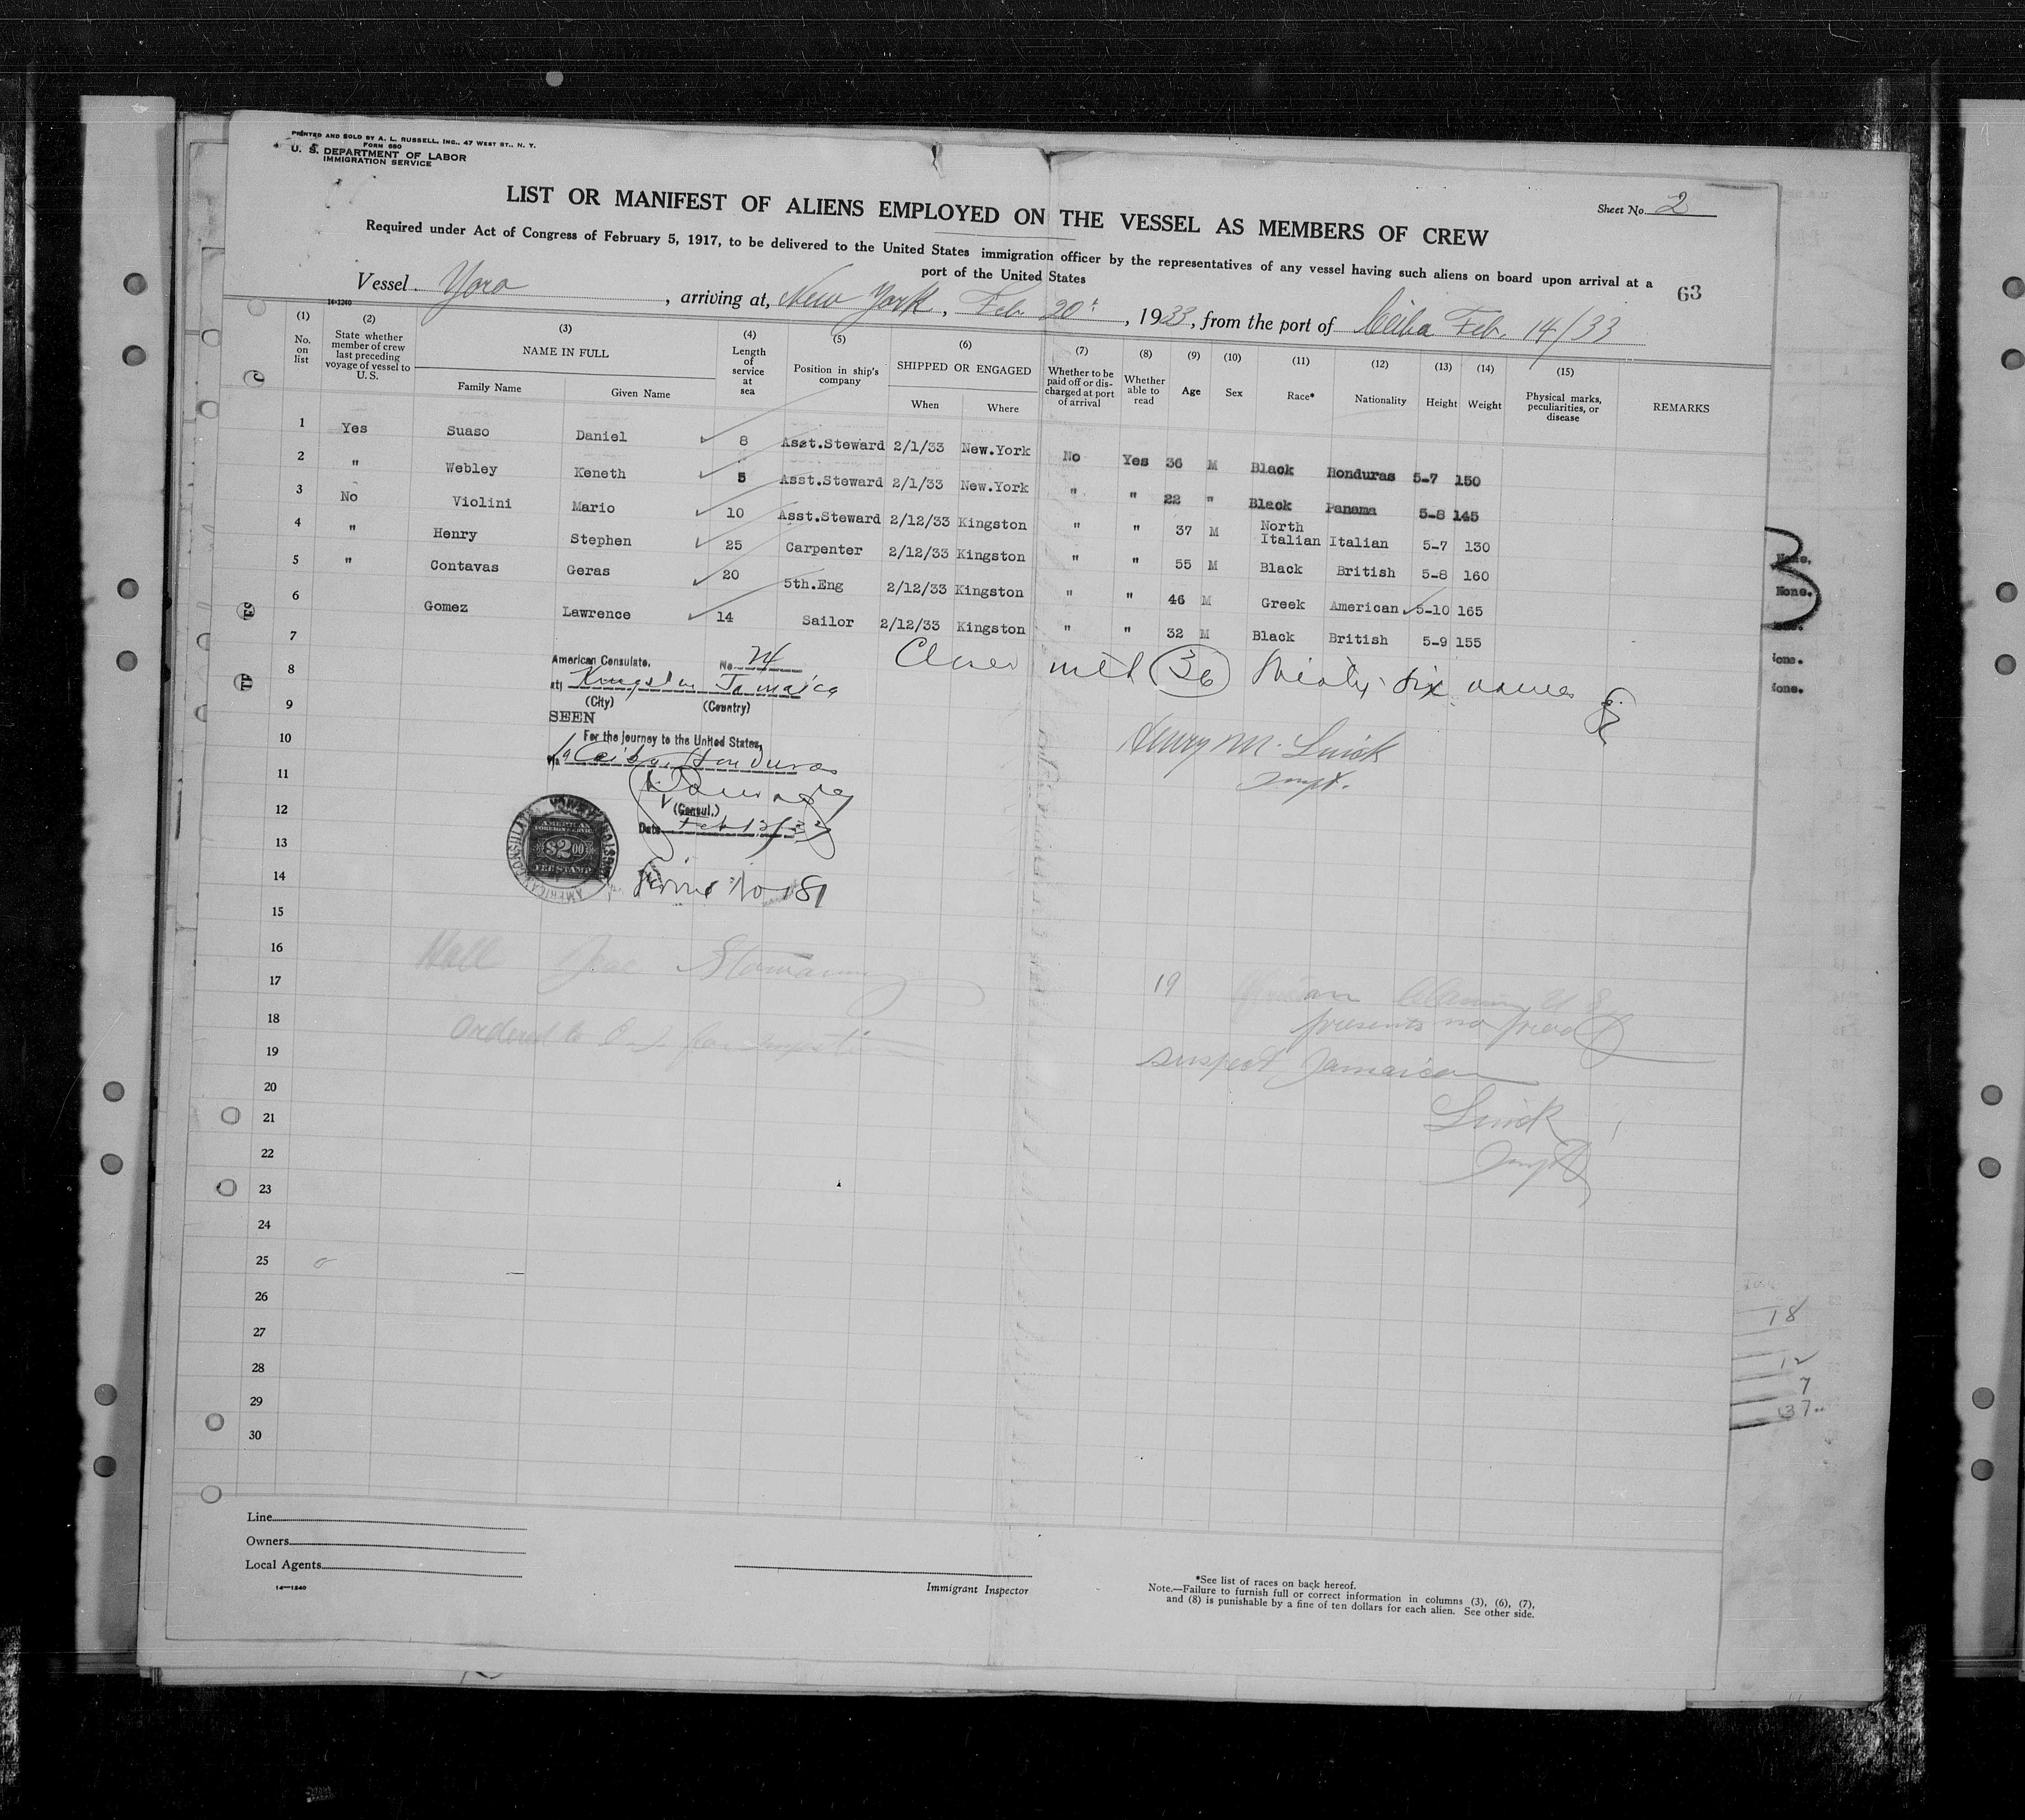 PRINTED AND SOLD BY A. L. RUSSELL, INC., 47 WEST ST., N. Y.
FORM 680
U. S. DEPARTMENT OF LABOR
IMMIGRATION SERVICE
Sheet No. 2
LIST OR MANIFEST OF ALIENS EMPLOYED ON THE VESSEL AS MEMBERS OF CREW
Required under Act of Congress of February 5, 1917, to be delivered to the United States immigration officer by the representatives of any vessel having such aliens on board upon arrival at a
port of the United States
63
Vessel Yoro, arriving at, New York, Feb. 20th, 1933, from the port of Ceiba Feb. 14/33
14-1240
(1) No. on list
(2) State whether member of crew last preceding voyage of vessel to U. S.
(3) NAME IN FULL Family Name Given Name
(4) Length of service at sea
(5) Position in ship's company
(6) SHIPPED OR ENGAGED When Where
(7) Whether to be paid off or discharged at port of arrival
(8) Whether able to read
(9) Age
(10) Sex
(11) Race*
(12) Nationality
(13) Height
(14) Weight
(15) Physical marks, peculiarities, or disease
REMARKS
1 Yes Suaso Daniel 8 Asst.Steward 2/1/33 New.York No Yes 36 M Black Honduras 5-7 150
2 " Webley Keneth 5 Asst.Steward 2/1/33 New.York " " 22 " Black Panama 5-8 145
3 No Violini Mario 10 Asst.Steward 2/12/33 Kingston " " 37 M North Italian Italian 5-7 130
4 " Henry Stephen 25 Carpenter 2/12/33 Kingston " " 55 M Black British 5-8 160
5 " Contavas Geras 20 5th.Eng 2/12/33 Kingston " " 46 M Greek American 5-10 165
6 Gomez Lawrence 14 Sailor 2/12/33 Kingston " " 32 M Black British 5-9 155
7
Closes with 36 thirty-six names
8
American Consulate,
No. 24
at Kingston Jamaica
(City) (Country)
9
SEEN
10
For the journey to the United States,
via La Ceiba, Honduras
Henry M. Linick
Inspt.
11
12
(Consul.)
Date Feb 12/33
13
AMERICAN
FOREIGN SERVICE
$2.00
FEE STAMP
14
Service No 181
15
16
Hall Isac Stowaway
17
19 claiming U S
18
presents no proof
Ordered to E. I. for inspection
19
suspect Jamaican
20
21
Linick
22
Inspt
23
24
25
26
27
28
29
30
None.
None.
ione.
ione.
18
12
7
37
Line
Owners
Local Agents
14-1240
Immigrant Inspector
*See list of races on back hereof.
Note.—Failure to furnish full or correct information in columns (3), (6), (7),
and (8) is punishable by a fine of ten dollars for each alien. See other side.